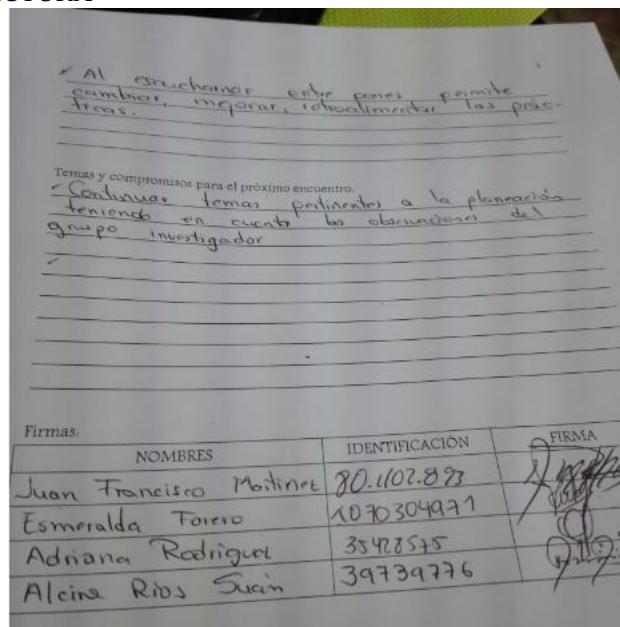 ✓ Al escucharnos entre pares permite
cambiar, mejorar, retroalimentar las prác-
ticas.
Temas y compromisos para el próximo encuentro.
- Continuar temas pertinentes a la planeación
teniendo en cuenta las observaciones del
grupo investigador
Firmas:
NOMBRES IDENTIFICACIÓN FIRMA
Juan Francisco Martinez
Esmeralda Forero 1070304971
Adriana Rodriguez 35428575
Alcira Rios 39739776